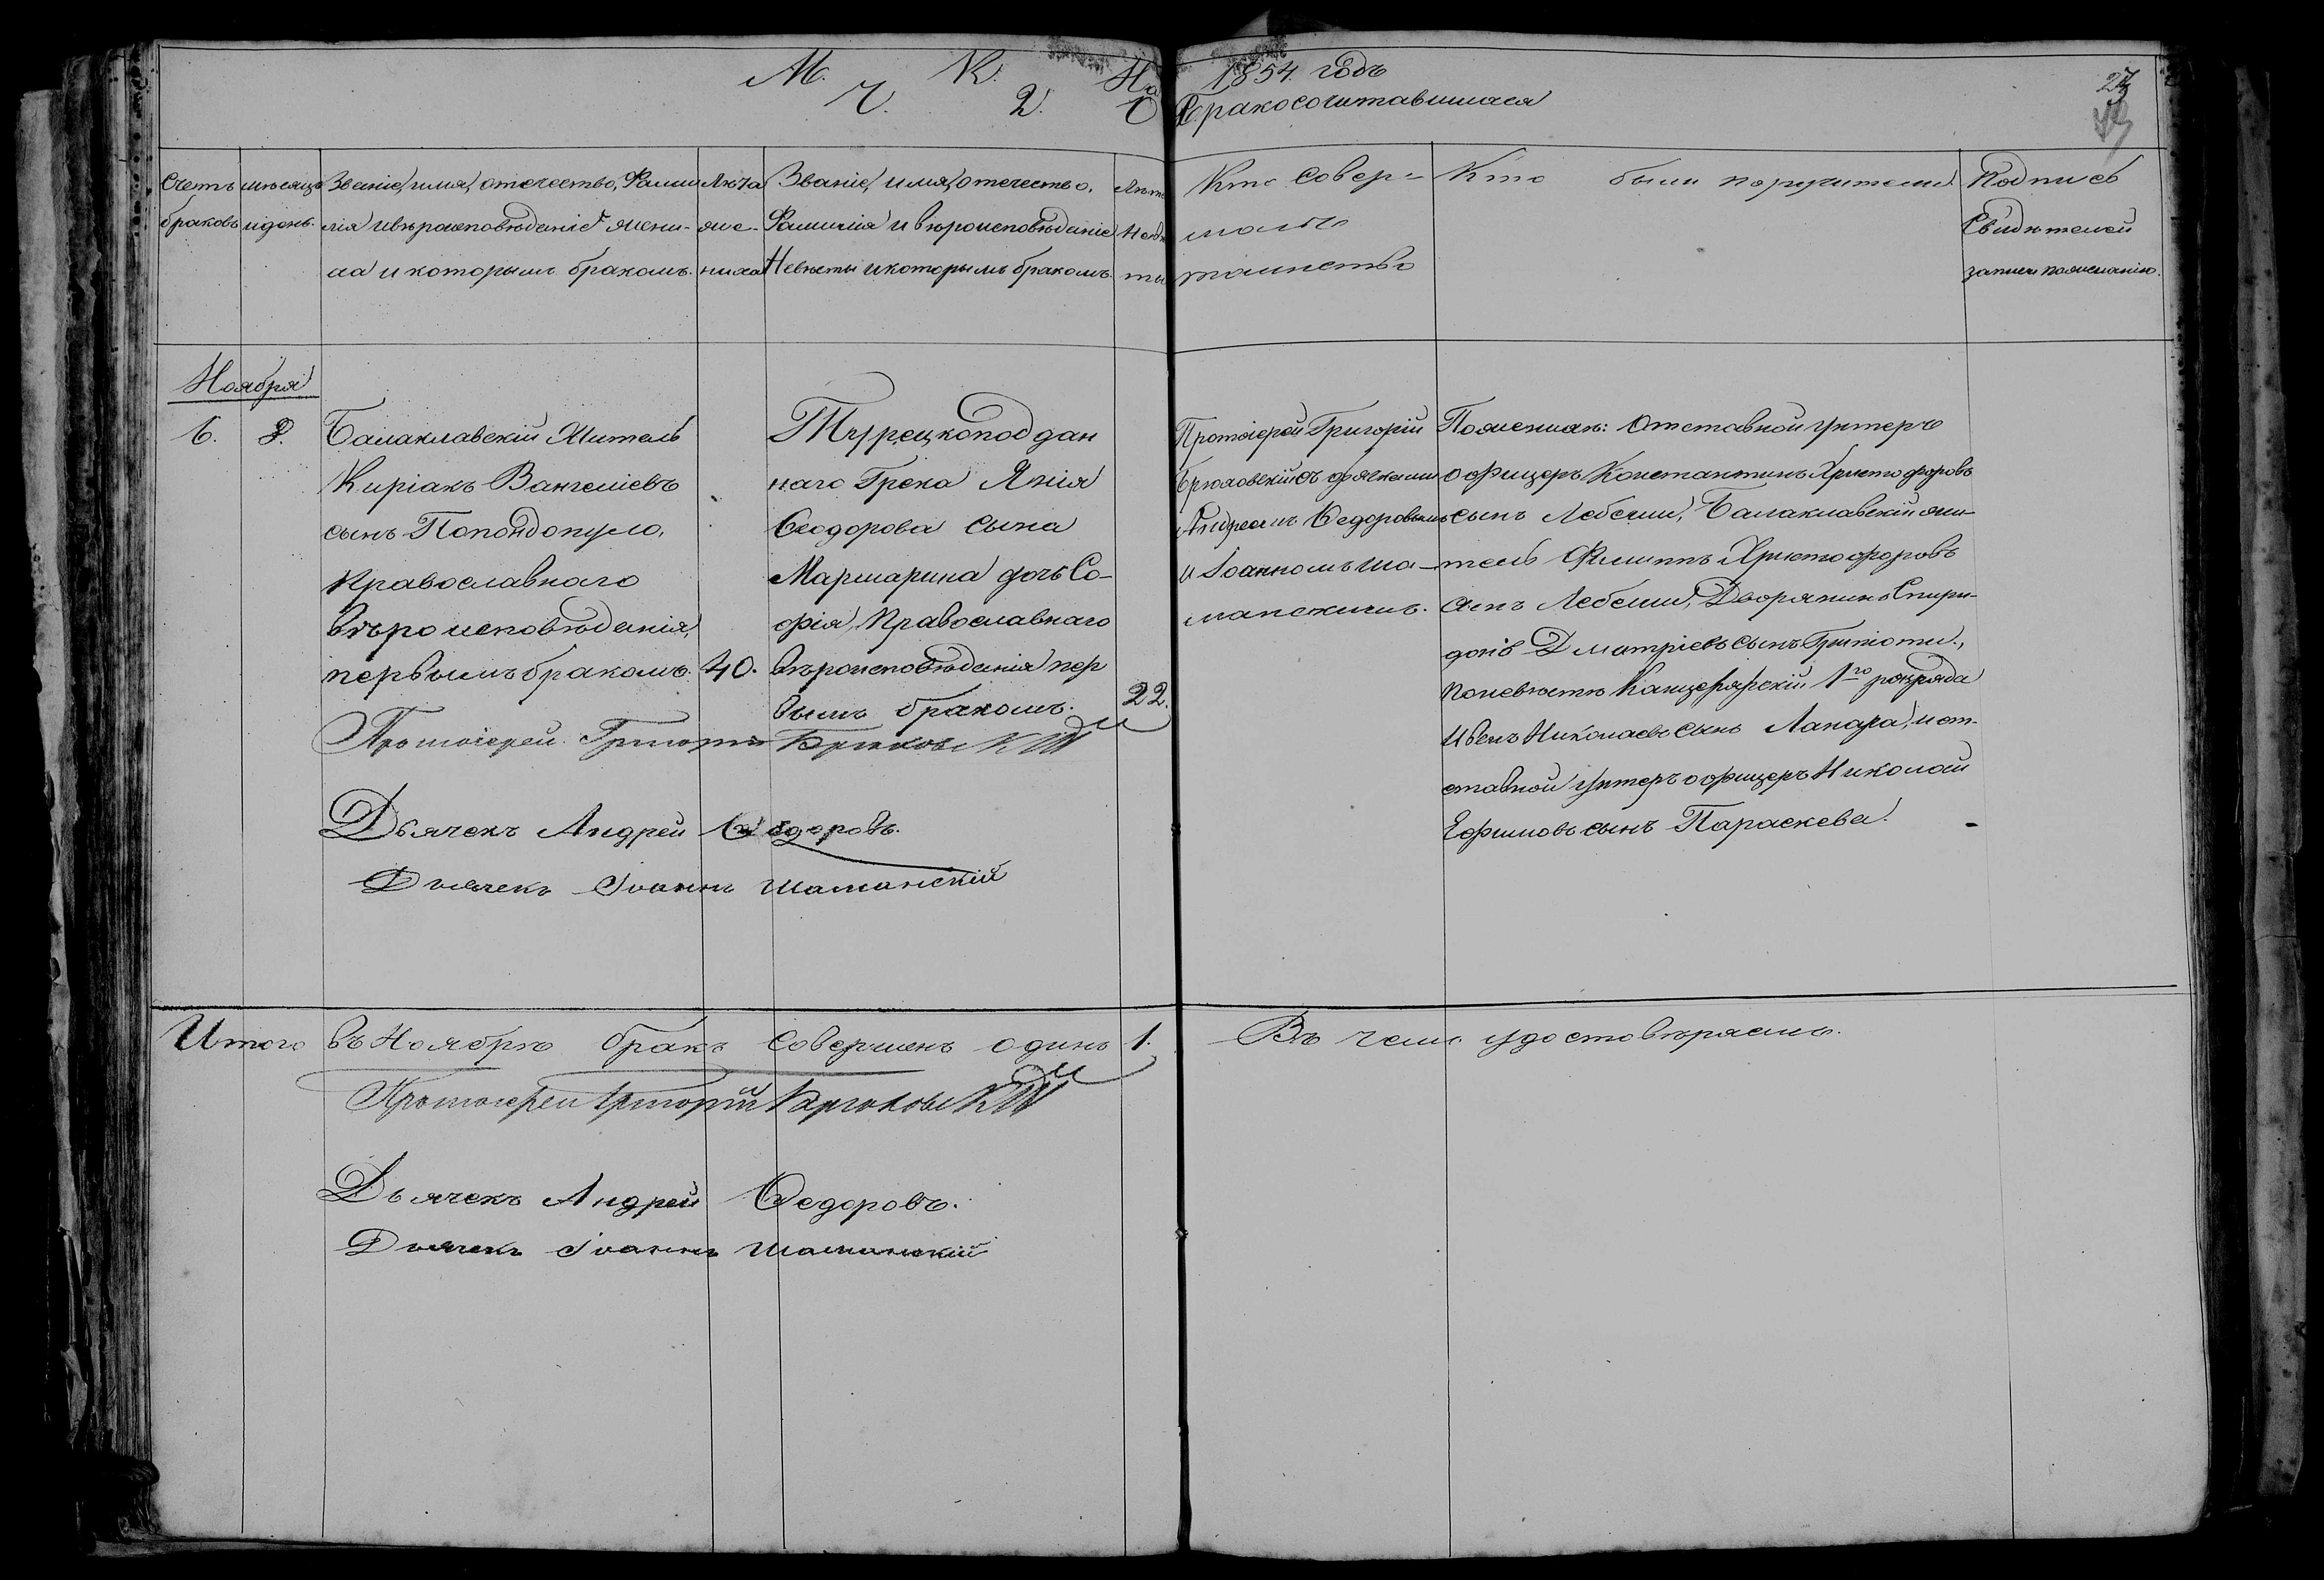 М. К. На 1854 годъ
Ч. 2. О Бракосочитавшихся
27
Счетъ браковъ
мѣсяцъ и день.
Званіе, имя, отечество, Фами-
лія и вѣроисповѣданіе жени-
ха и которымъ бракомъ.
Лѣта
же-
ниха
Званіе, имя, отечество,
Фамилія и вѣроисповѣданіе
Невѣсты и которымъ бракомъ.
Лѣта
Невѣс
ты
Кто совер-
шалъ
таинство
Кто были поручители
Подпись
Свидѣтелей
записи по желанію.
Ноября
6. 8.
Балаклавскій Житель
Киріакъ Вангеліевъ
сынъ Попондопуло,
Православнаго
Вѣроисповѣданія,
первымъ бракомъ. 40.
Турецкоподдан
наго Грека Янія
Ѳеодорова сына
Мармарина дочь Со-
фія, Православнаго
вѣроисповѣданія пер
вымъ бракомъ. 22.
Протоіерей Григорій
Брюховскій съ дьячками
Андреемъ Ѳедоровымъ
и Іоанномъ Ша-
манскимъ.
По женихѣ: Отставной унтеръ
офицеръ Константинъ Христофоровъ
сынъ Лебеши, Балаклавскій жи-
тель Филиппъ Христофоровъ
сынъ Лебеши, Дворянинъ Спири-
донъ Дматріевъ сынъ Грипіоти,
по невѣстѣ Канцелярскій 1го разряда
Иванъ Николаевъ сынъ Лапара, и от-
ставной унтеръ офицеръ Николай
Ефимовъ сынъ Параскева.
Протоіерей Григорій Брюховскій
Дьячекъ Андрей Ѳедоровъ.
Дьячекъ Іоаннъ Шаманскій
Итого въ Ноябрѣ бракъ совершенъ одинъ 1.
Въ чемъ удостовѣряемъ.
Протоіерей Григорій Брюховскій
Дьячекъ Андрей Ѳедоровъ.
Дьячекъ Іоаннъ Шаманскій